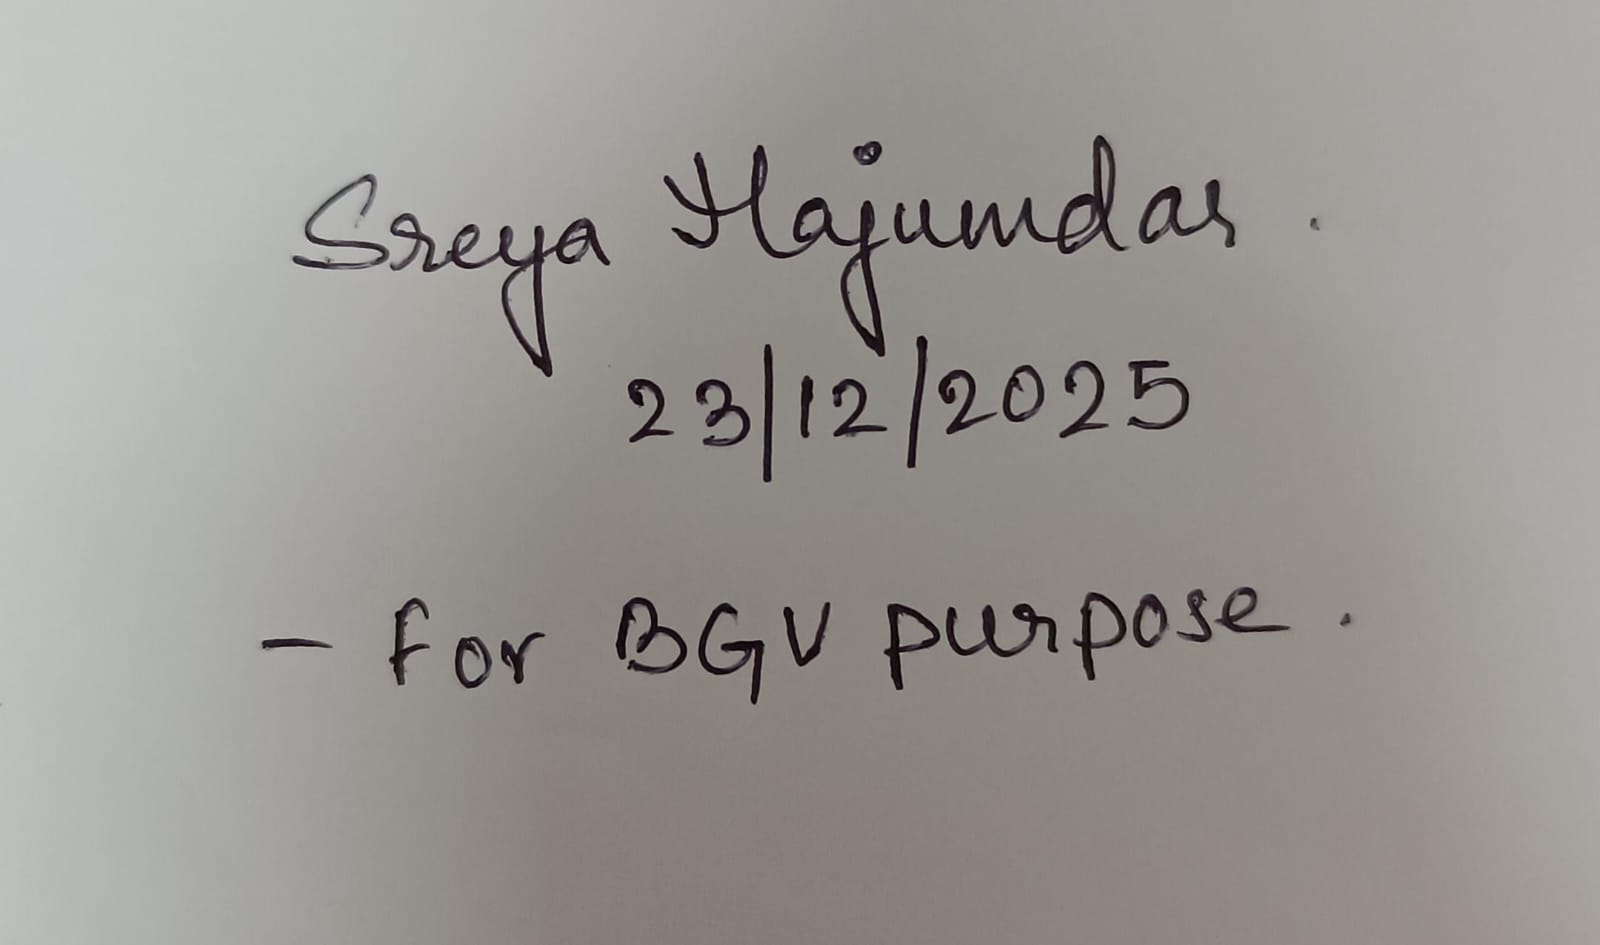 Sreya Majumdar.
23/12/2025
- for BGV purpose.